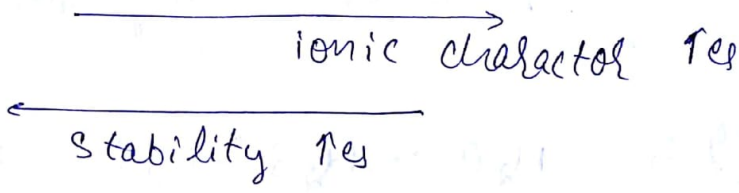 ionic charactor ↑es
stability ↑es